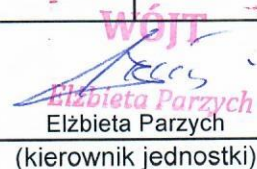 WÓJT
Elżbieta Parzych
Elżbieta Parzych
(kierownik jednostki)